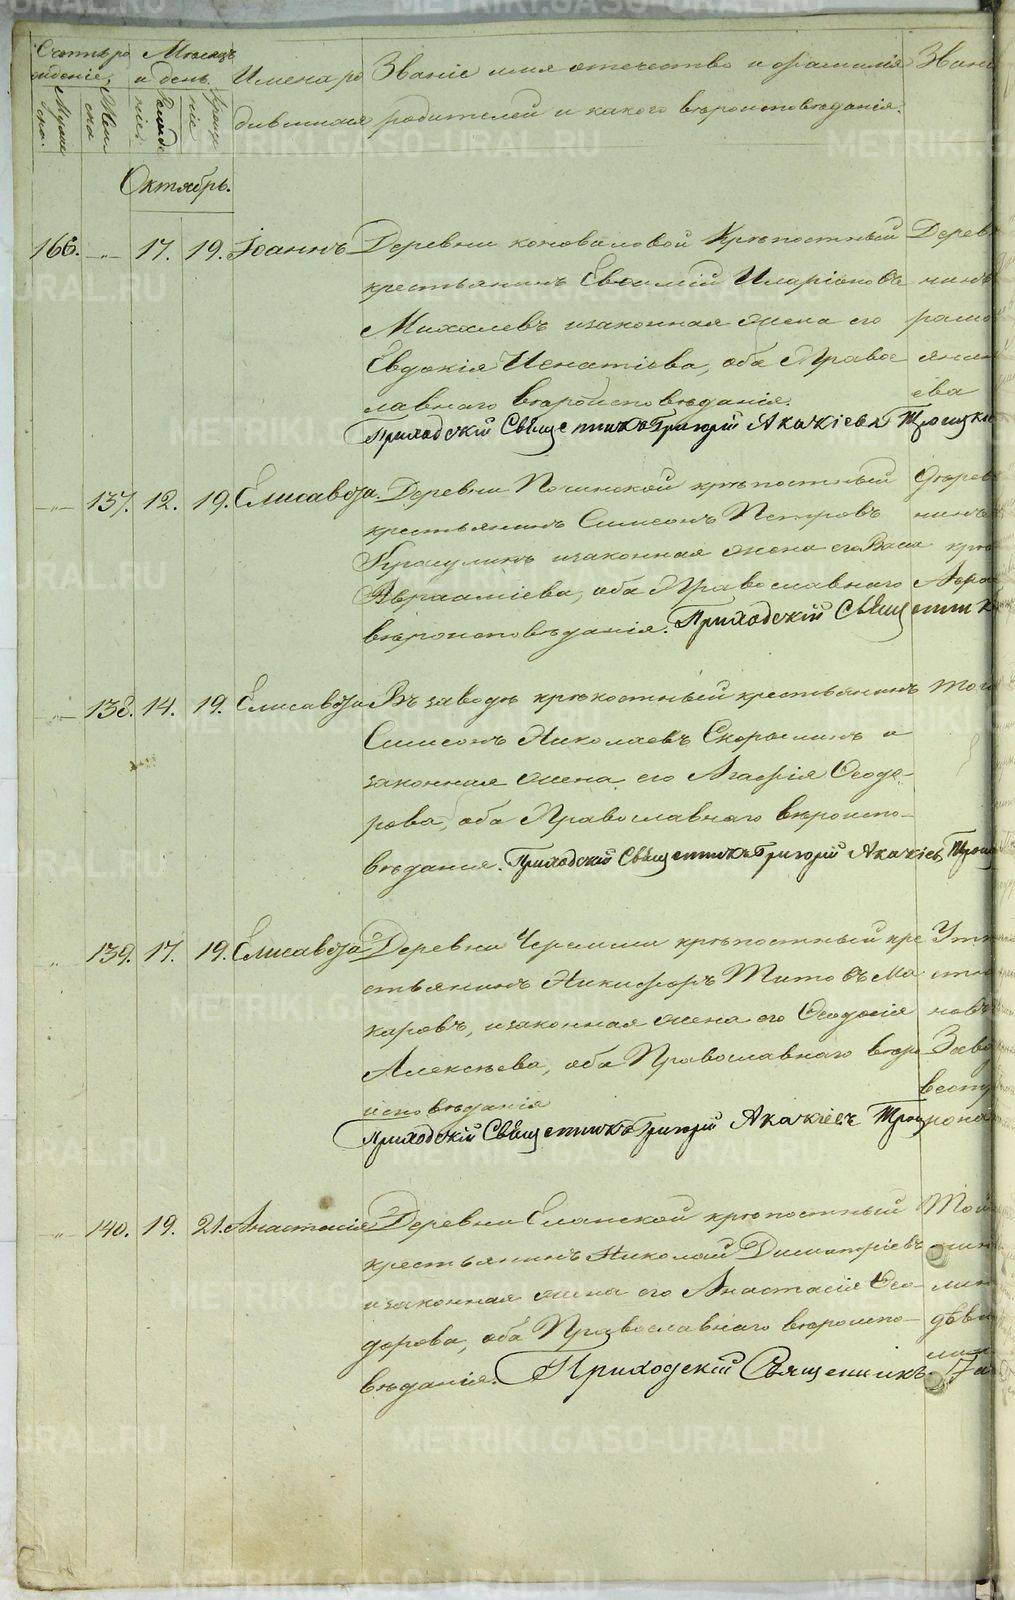 Счетъ ро
жденіе,
Муже
ска.
Жен
ска
Мѣсяцъ
и день.
Рожде
нія.
Креще
нія
Имена ро
дившихся
Званіе имя отечество и фамилія
родителей и какого вѣроисповѣданія.
Звані
Октябрь.
166. —"— 17. 19. Іоаннъ Деревни Коноваловой Крѣпостный Дерев
крестьянинъ Евфимій Иларіоновъ нинъ
Михалевъ изаконная жена его
Евдокія Игнатіева, оба Право
славнаго вѣроисповѣданія. ева
Приходскій Священникъ Григорій Акакіевъ Троицк
—"— 137. 12. 19. Елисавета. Деревни Починской крѣпостный Дерев
крестьянинъ Симеонъ Петровъ нинъ
изаконная жена его Васа
Авраамiева, оба Православнаго
вѣроисповѣданія. Приходскій Священник
—"— 138. 14. 19. Елисавета Въ заводѣ крѣпостный крестьянинъ того
Симеонъ Николаевъ Скорынинъ и
законная жена его Агафія Ѳеодо-
рова, оба Православнаго вѣроиспо-
вѣданія. Приходскій Священникъ Григорій Акакіевъ Трои
" 139. 17. 19. Елисавета Деревни Черемши крѣпостный кре
стьянинъ Никифоръ Титовъ Ма
каровъ, изаконная жена его Ѳеодосія новъ
Алексѣева, оба Православнаго вѣро Заво
исповѣданія
Приходскій Священникъ Григорій Акакіевъ Трои
—"— 140. 19. 21. Анастасія Деревни Еланской крѣпостный Той
крестьянинъ Николай Димитріевъ
изаконная жена его Анастасія Ѳео-
дорова, оба Православнаго вѣроиспо- дѣви
вѣданія. Приходскій Священникъ
METRIKI.GASO-URAL.RU